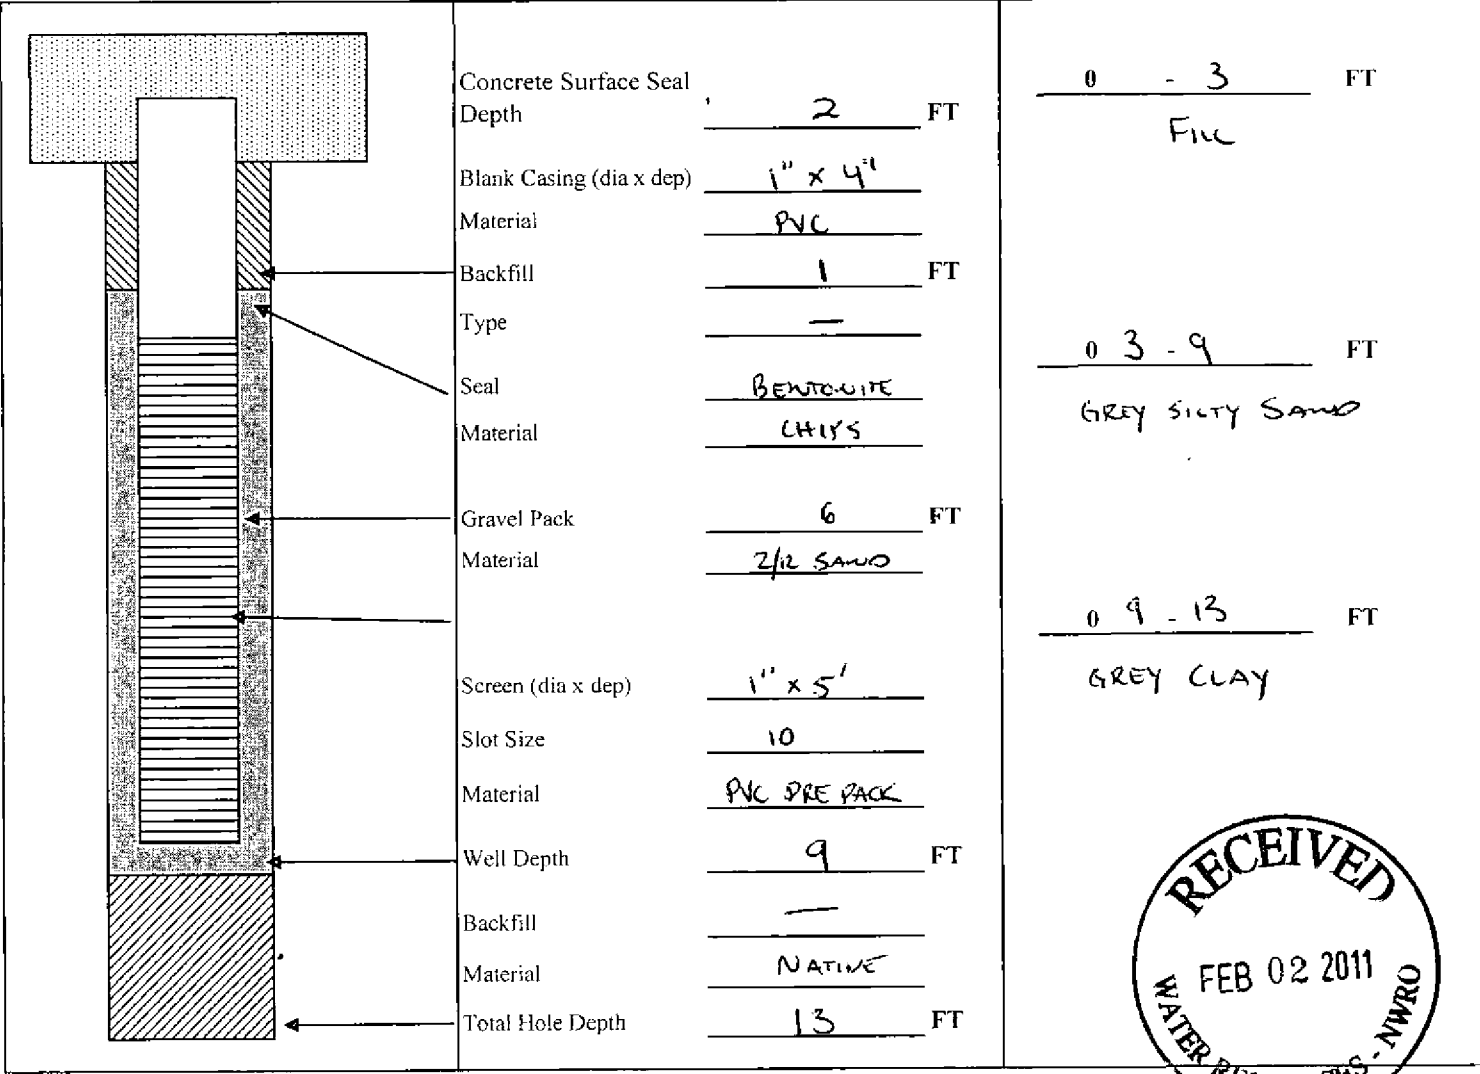 Concrete Surface Seal
Depth 2 FT
Blank Casing (dia x dep) 1" x 4'
Material PVC
Backfill 1 FT
Type —
Seal BENTONITE
Material CHIPS
Gravel Pack 6 FT
Material 2/12 SAND
Screen (dia x dep) 1" x 5'
Slot Size 10
Material PVC PRE PACK
Well Depth 9 FT
Backfill —
Material NATIVE
Total Hole Depth 13 FT
0 - 3 FT
FILL
0 3 - 9 FT
GREY SILTY SAND
0 9 - 13 FT
GREY CLAY
RECEIVED
FEB 02 2011
WATER - NWRO